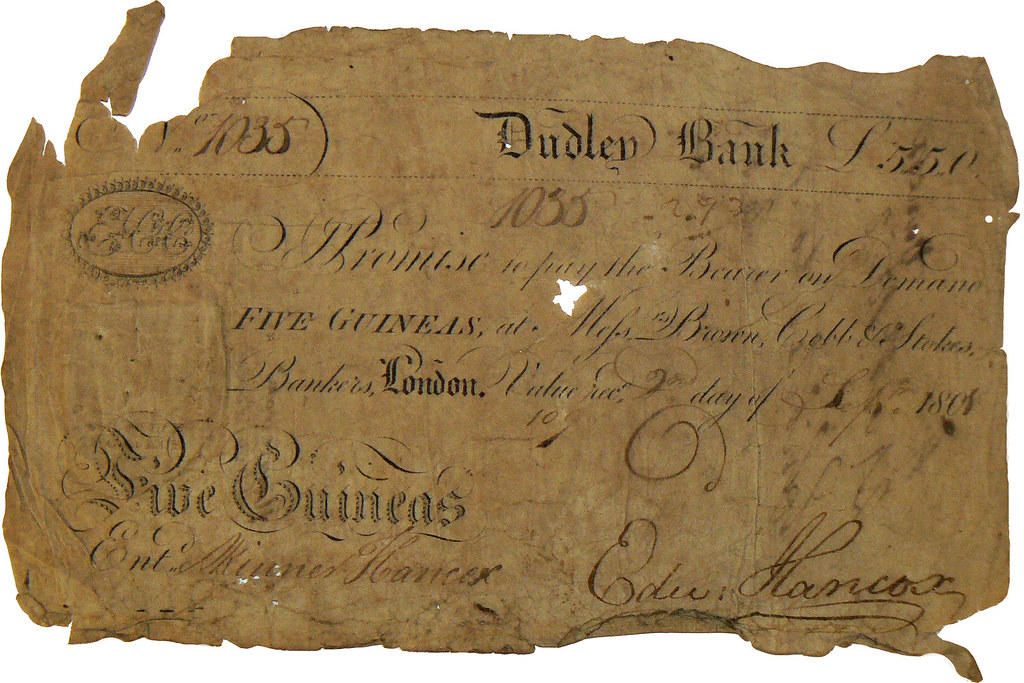 No. 1035 Dudley Bank £5.5.0
1035
I Promise to pay the Bearer on Demand
FIVE GUINEAS, at Messrs. Brown, Cobb & Stokes,
Bankers, London. Value recd. 2nd day of Septr. 1808
10
Five Guineas
Entd. Skinner Hancox
Edw: Hancox